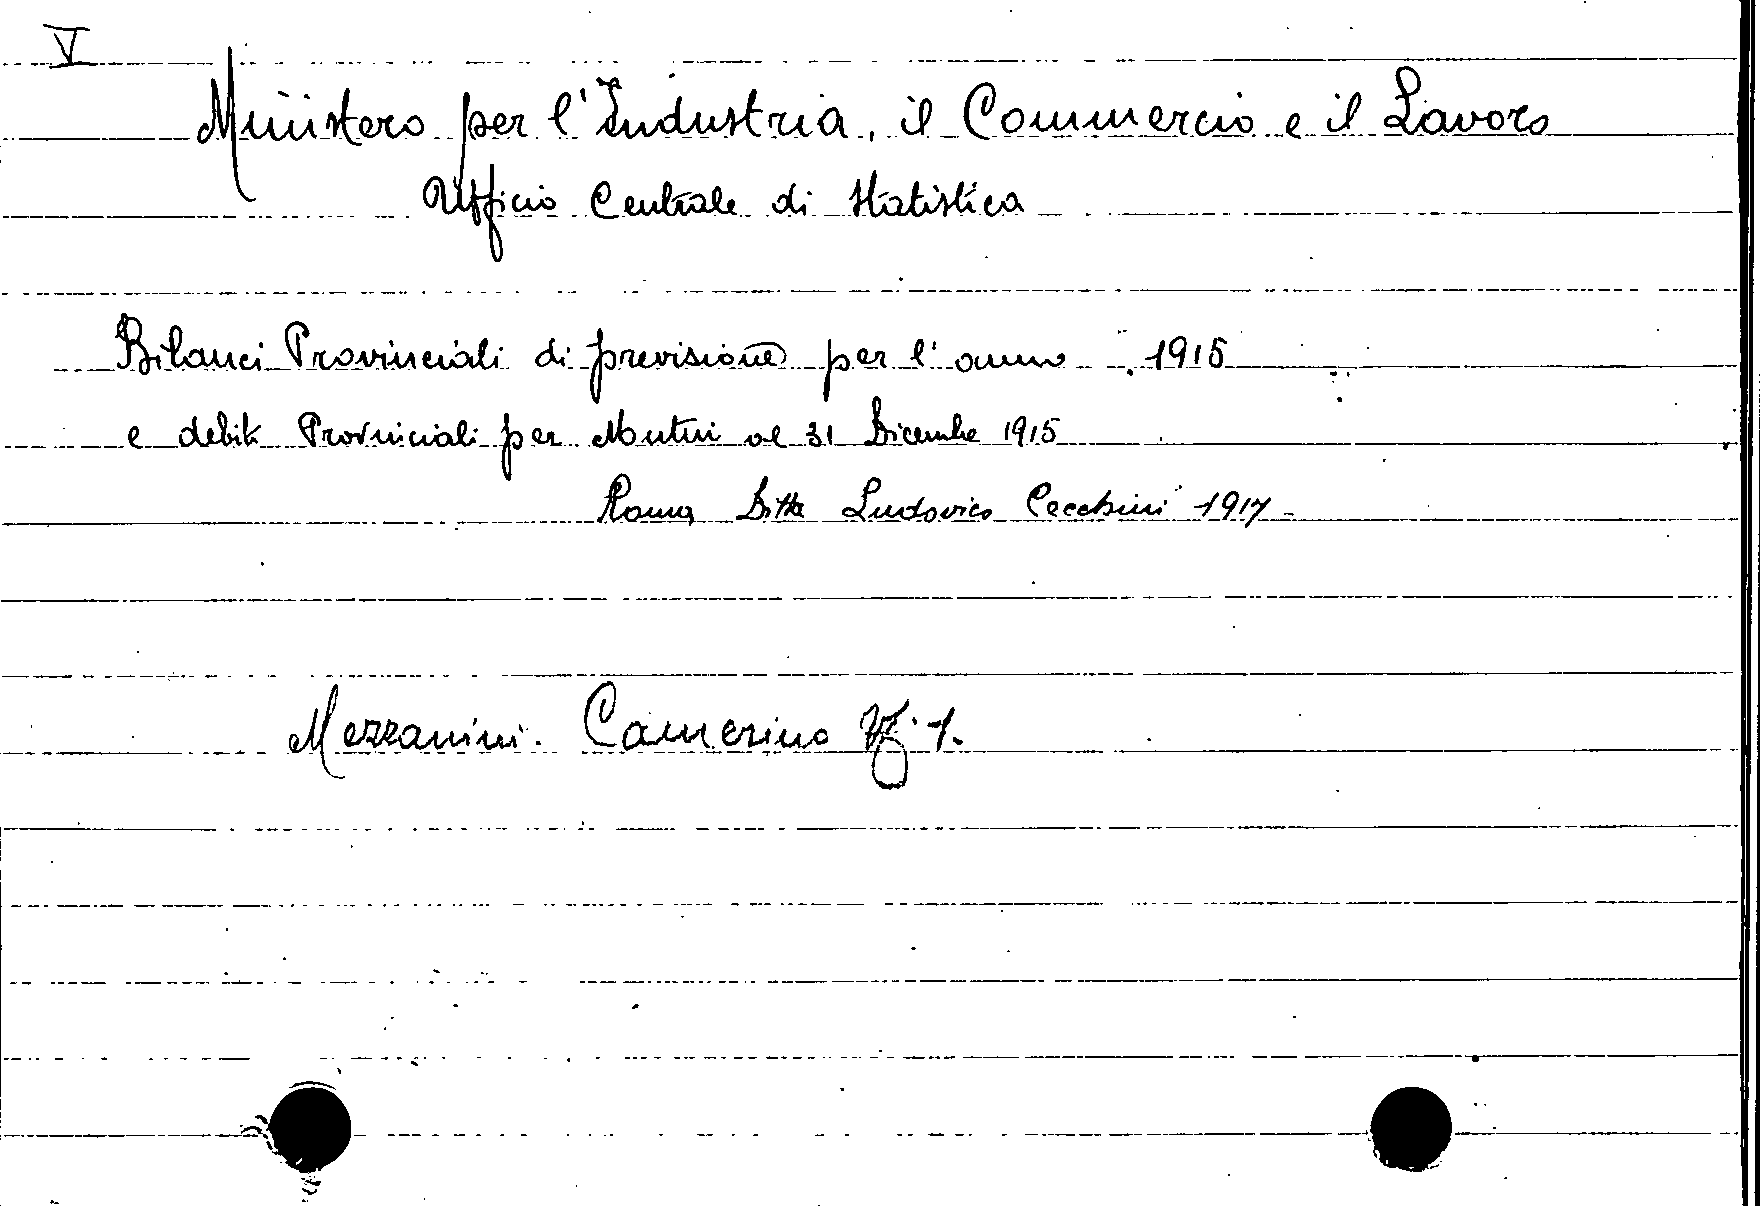 V
Ministero per l'Industria, il Commercio e il Lavoro
Ufficio Centrale di Statistica
Bilanci Provinciali di previsione per l'anno 1915
e debiti Provinciali per Mutui al 31 Dicembre 1915
Roma Ditta Ludovico Cecchini 1917
Mezzanini. Camerino 1.